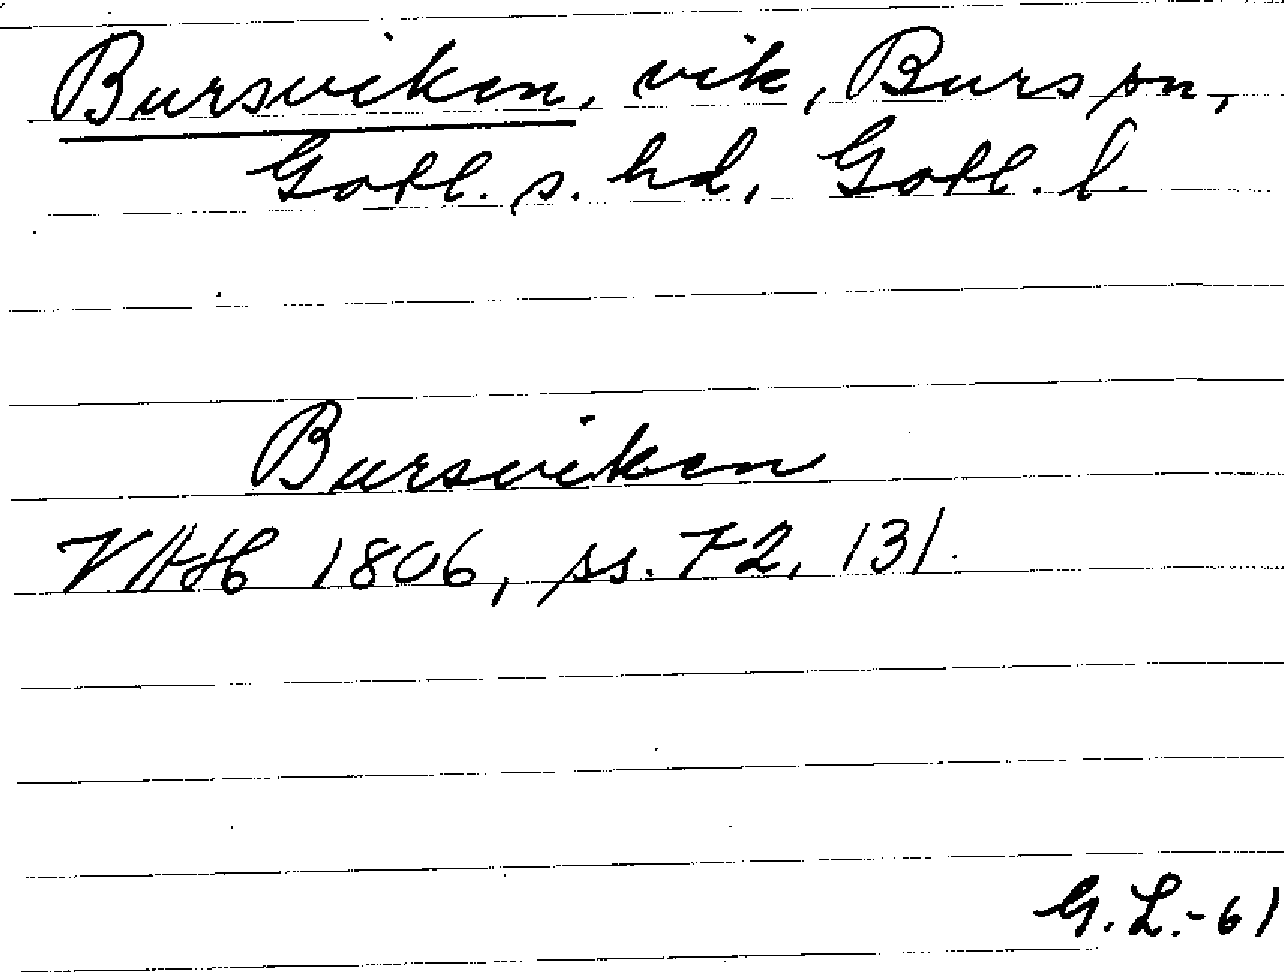 Bursviken, vik, Burs sn,
Gotl. s. hd, Gotl. l.
Bursviken
VAH 1806, ss. 72, 131.
G. L.-61